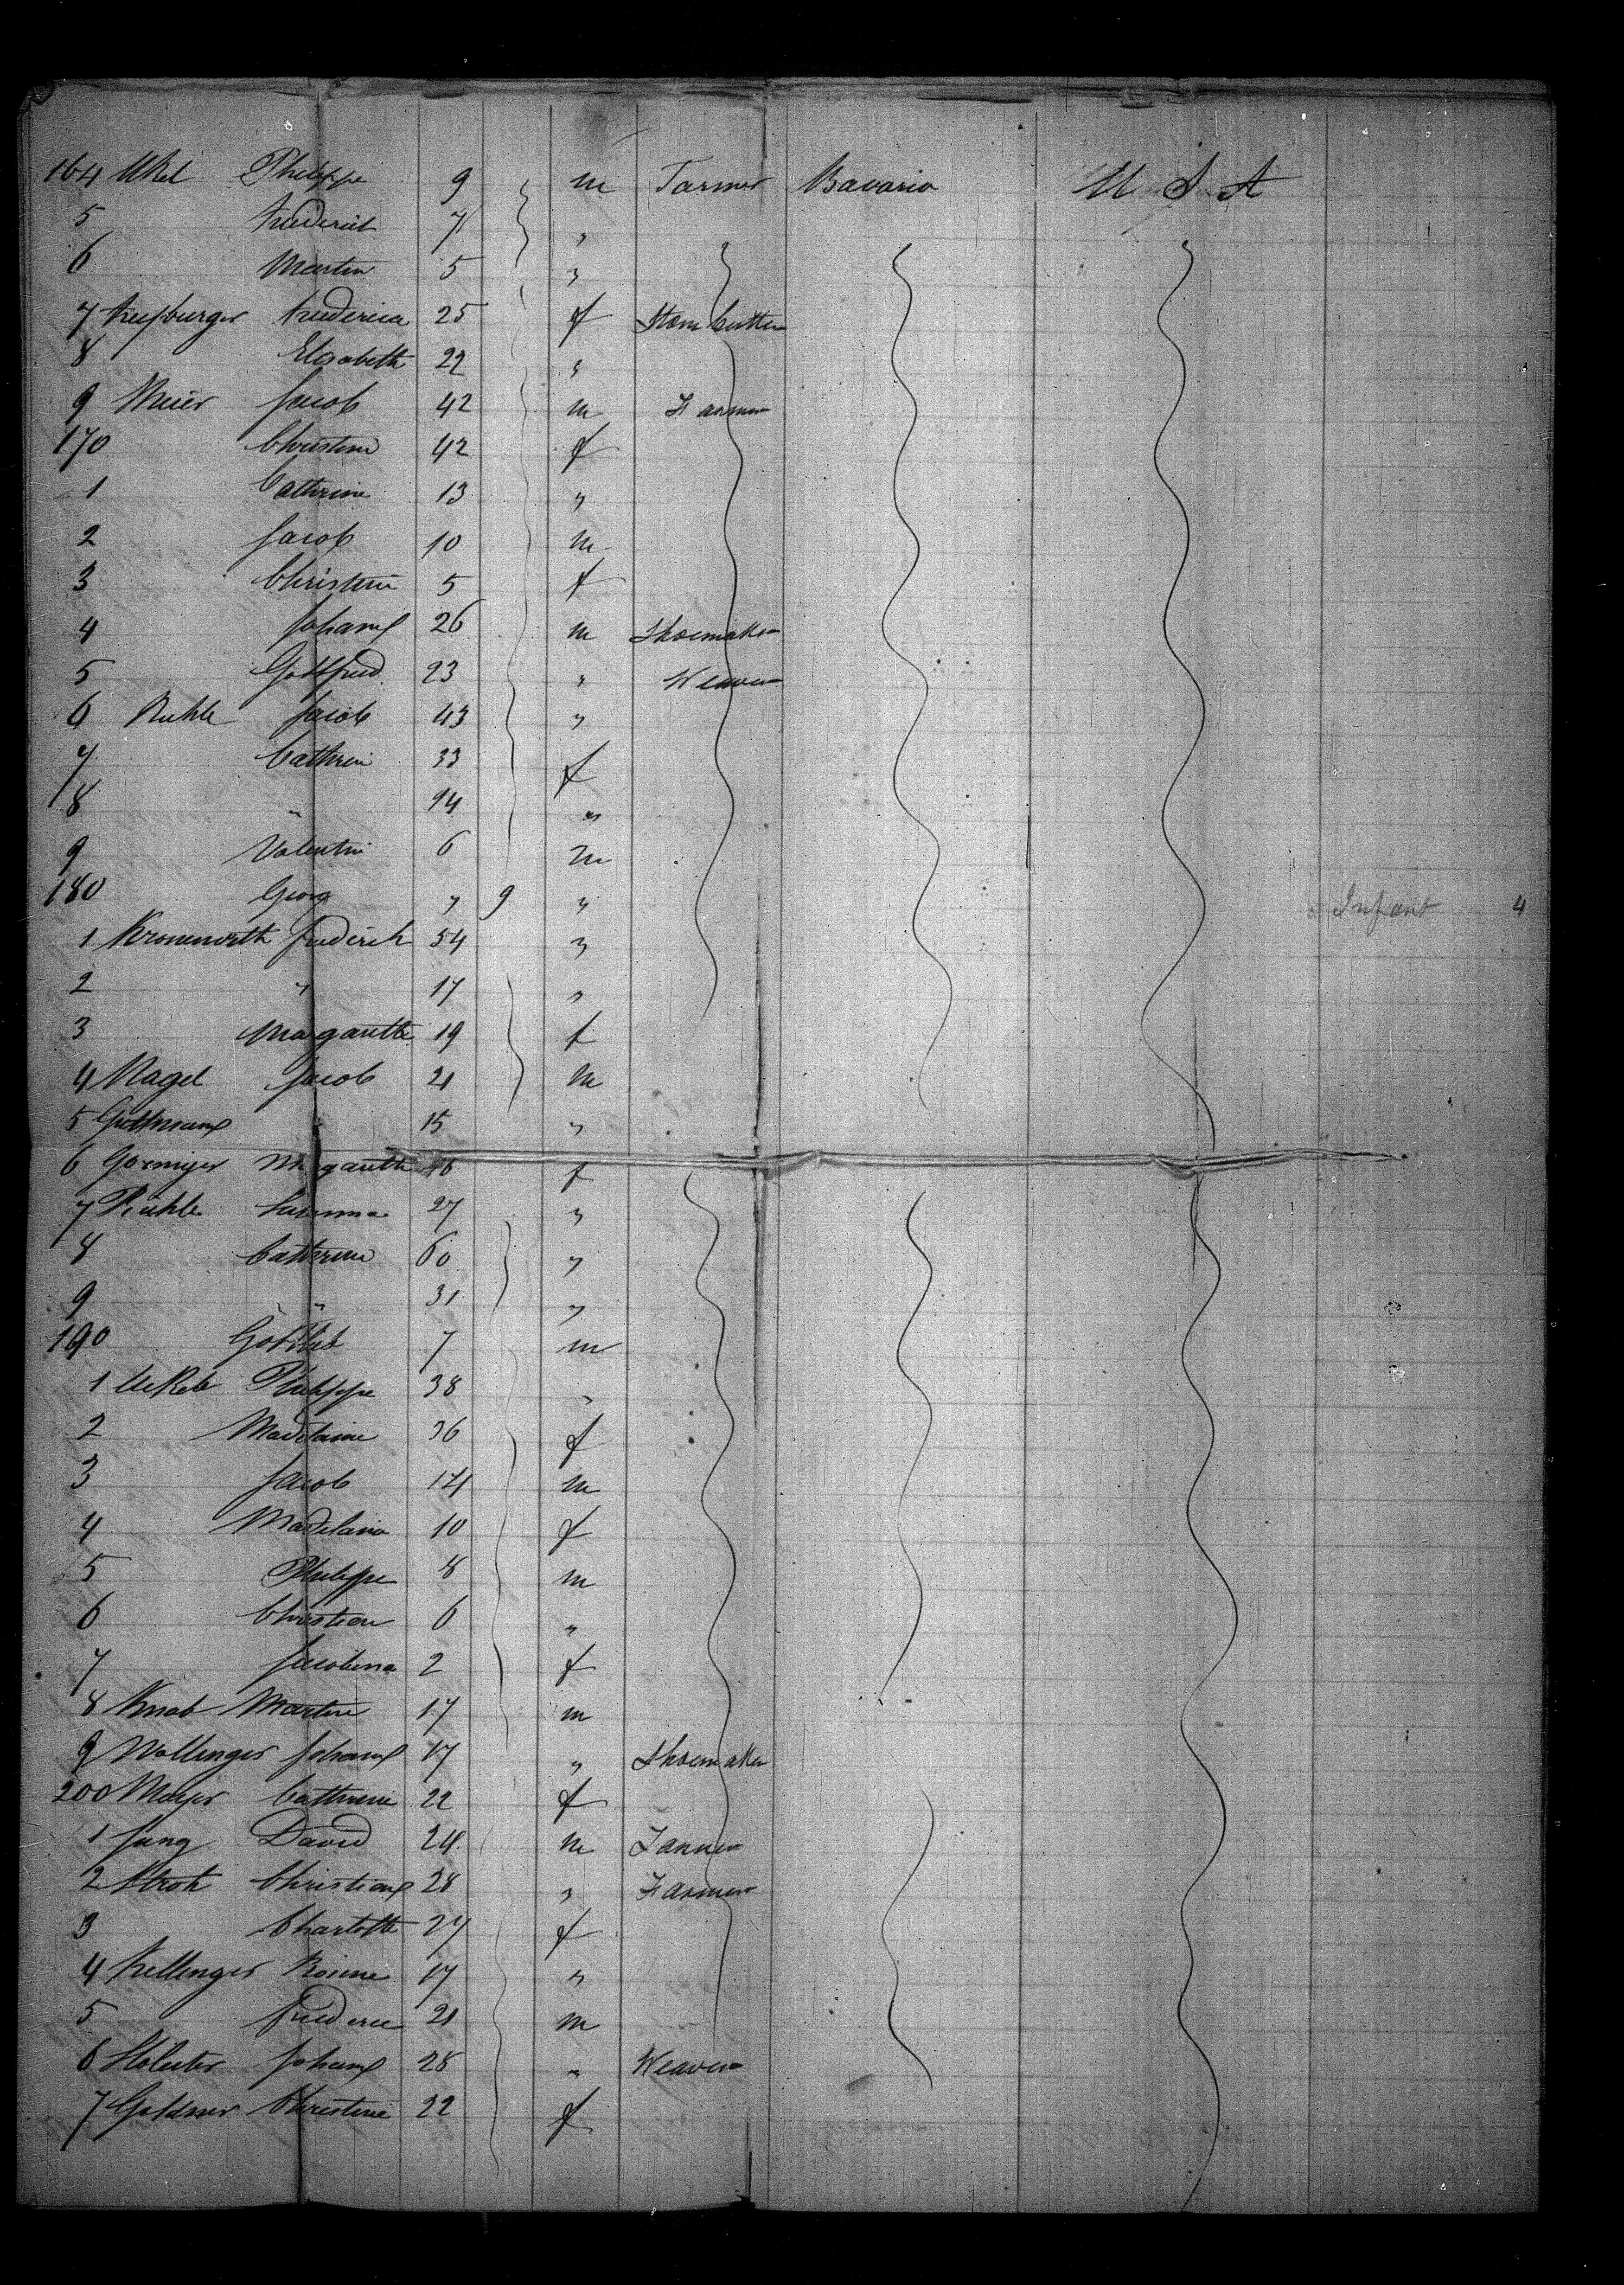 164 Ukel Philippe 9 m Farmer Bavaria U S A
5 Frederick 7 "
6 Martin 5 "
7 Frederica 25 f Stone Cutter
8 Elisabeth 22 "
9 Meier Jacob 42 m Farmer
170 Christine 42 f
1 Cathrine 13 "
2 Jacob 10 m
3 Christine 5 f
4 Johann 26 m Shoemaker
5 Gottfried 23 " Weaver
6 Ruhle Jacob 43 "
7 Cathrine 33 f
8 " 14 "
9 Valentin 6 m
180 Georg " 9 " Infant 4
1 Kronenwirth Frederick 54 "
2 " 17 "
3 Margarethe 19 f
4 Nagel Jacob 21 m
5 Guttmann " 15 "
6 Margarethe f
7 Ruhle Susanna 27 "
8 Cathrine 60 "
9 " 31 "
190 Gottlieb 7 m
1 Philippe 38 "
2 Madelaine 36 f
3 Jacob 14 m
4 Madelaine 10 f
5 Philippe 8 m
6 Christian 6 "
7 Jacobina 2 f
8 Knab Martin 17 m
9 Wollenger Johann 17 " Shoemaker
200 Mayer Cathrine 22 f
1 Jung David 24 m Tanner
2 Stroh Christian 28 " Farmer
3 Charlotte 27 f
4 Kellenger Rosine 17 "
5 Frederic 21 m
6 Johann 28 " Weaver
7 Goldner Christine 22 f